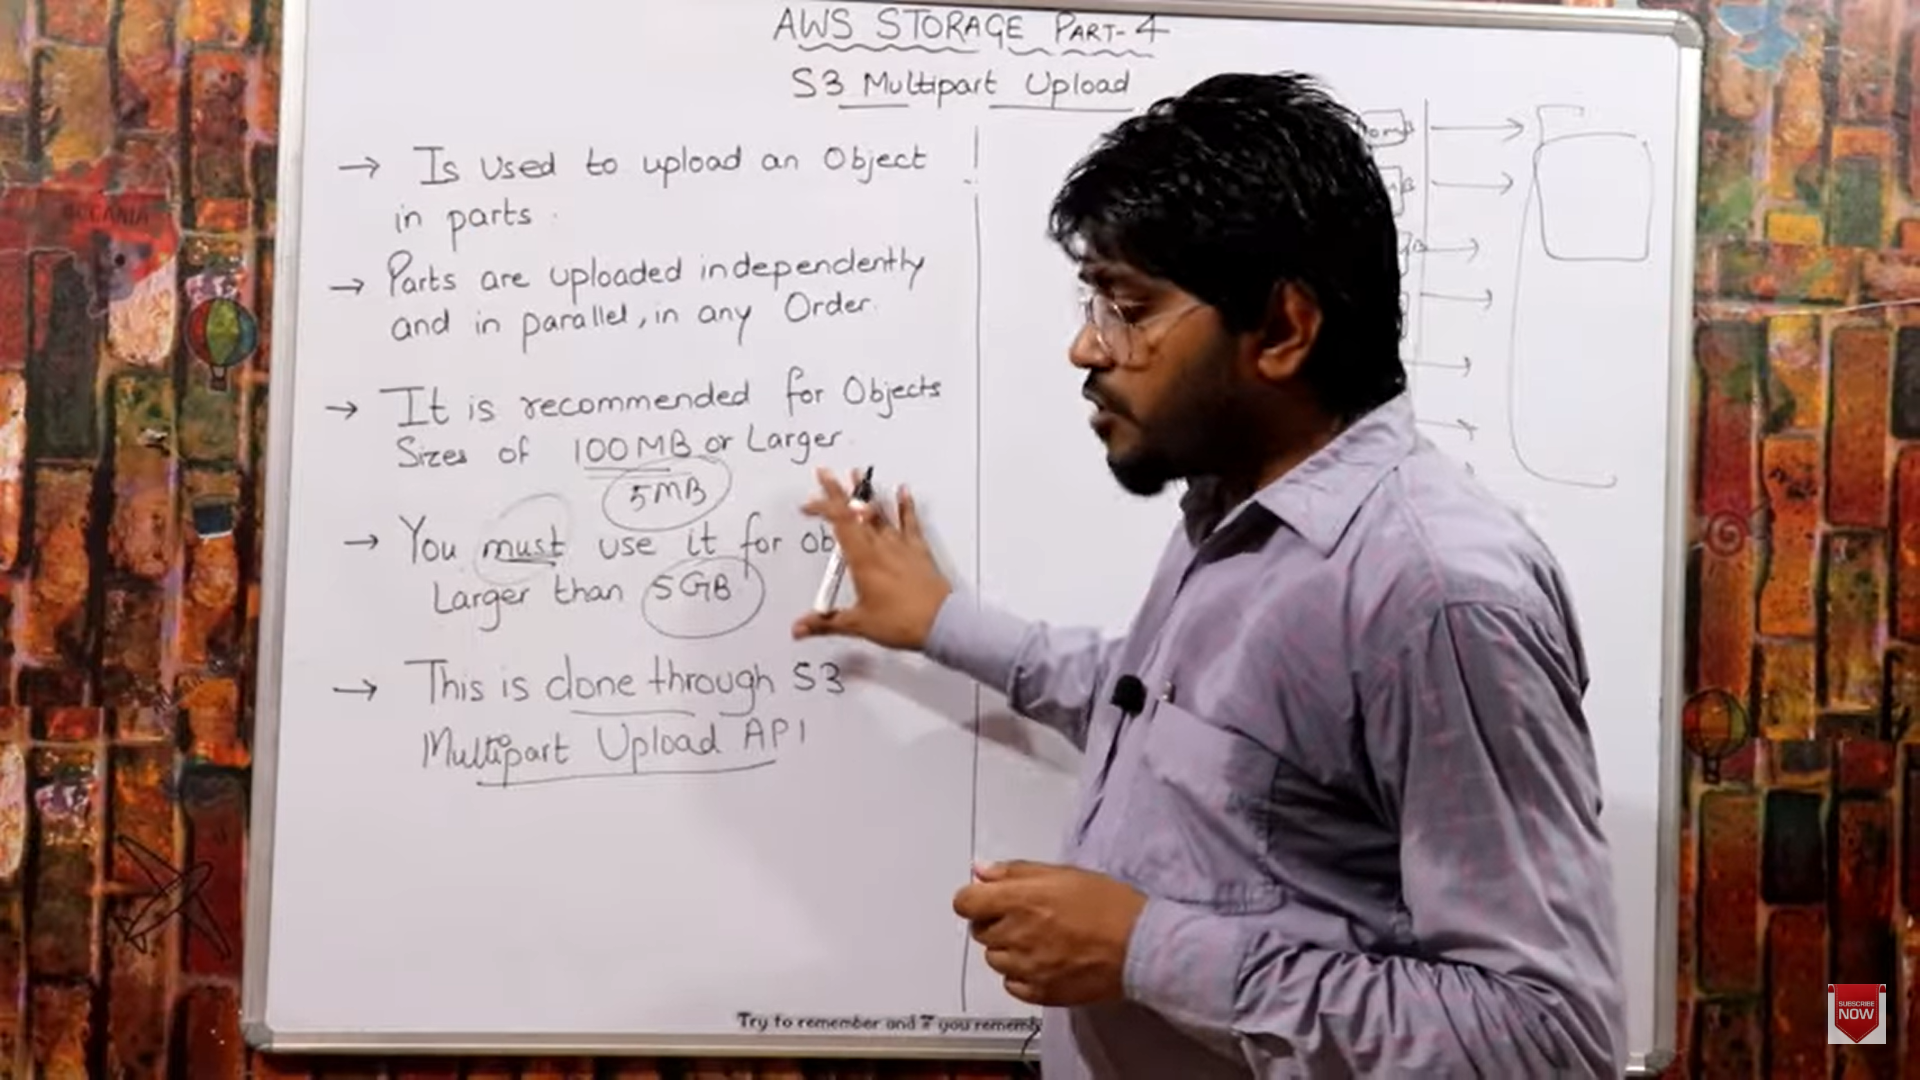 AWS STORAGE PART-4
S3 Multipart Upload
→ Is used to upload an Object
in parts.
→ Parts are uploaded independently
and in parallel, in any Order.
→ It is recommended for Objects
Sizes of 100MB or Larger
5MB
→ You must use it for
Larger than 5GB
→ This is done through S3
Multipart Upload API
Try to remember and you
SUBSCRIBE
NOW